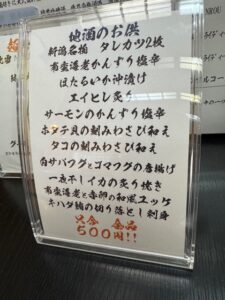 地酒のお供
新潟名物 タレカツ2枚
有頭海老かんずり塩辛
ほたるいか沖漬け
エイヒレ炙り
サーモンのかんずり塩辛
ホタテ貝の刻みわさび和え
タコの刻みわさび和え
白サバフグとゴマフグの唐揚げ
一夜干しイカの炙り焼き
有頭海老と赤卵の和風ユッケ
キハダ鮪の切り落とし刺身
只今 全品
500円!!